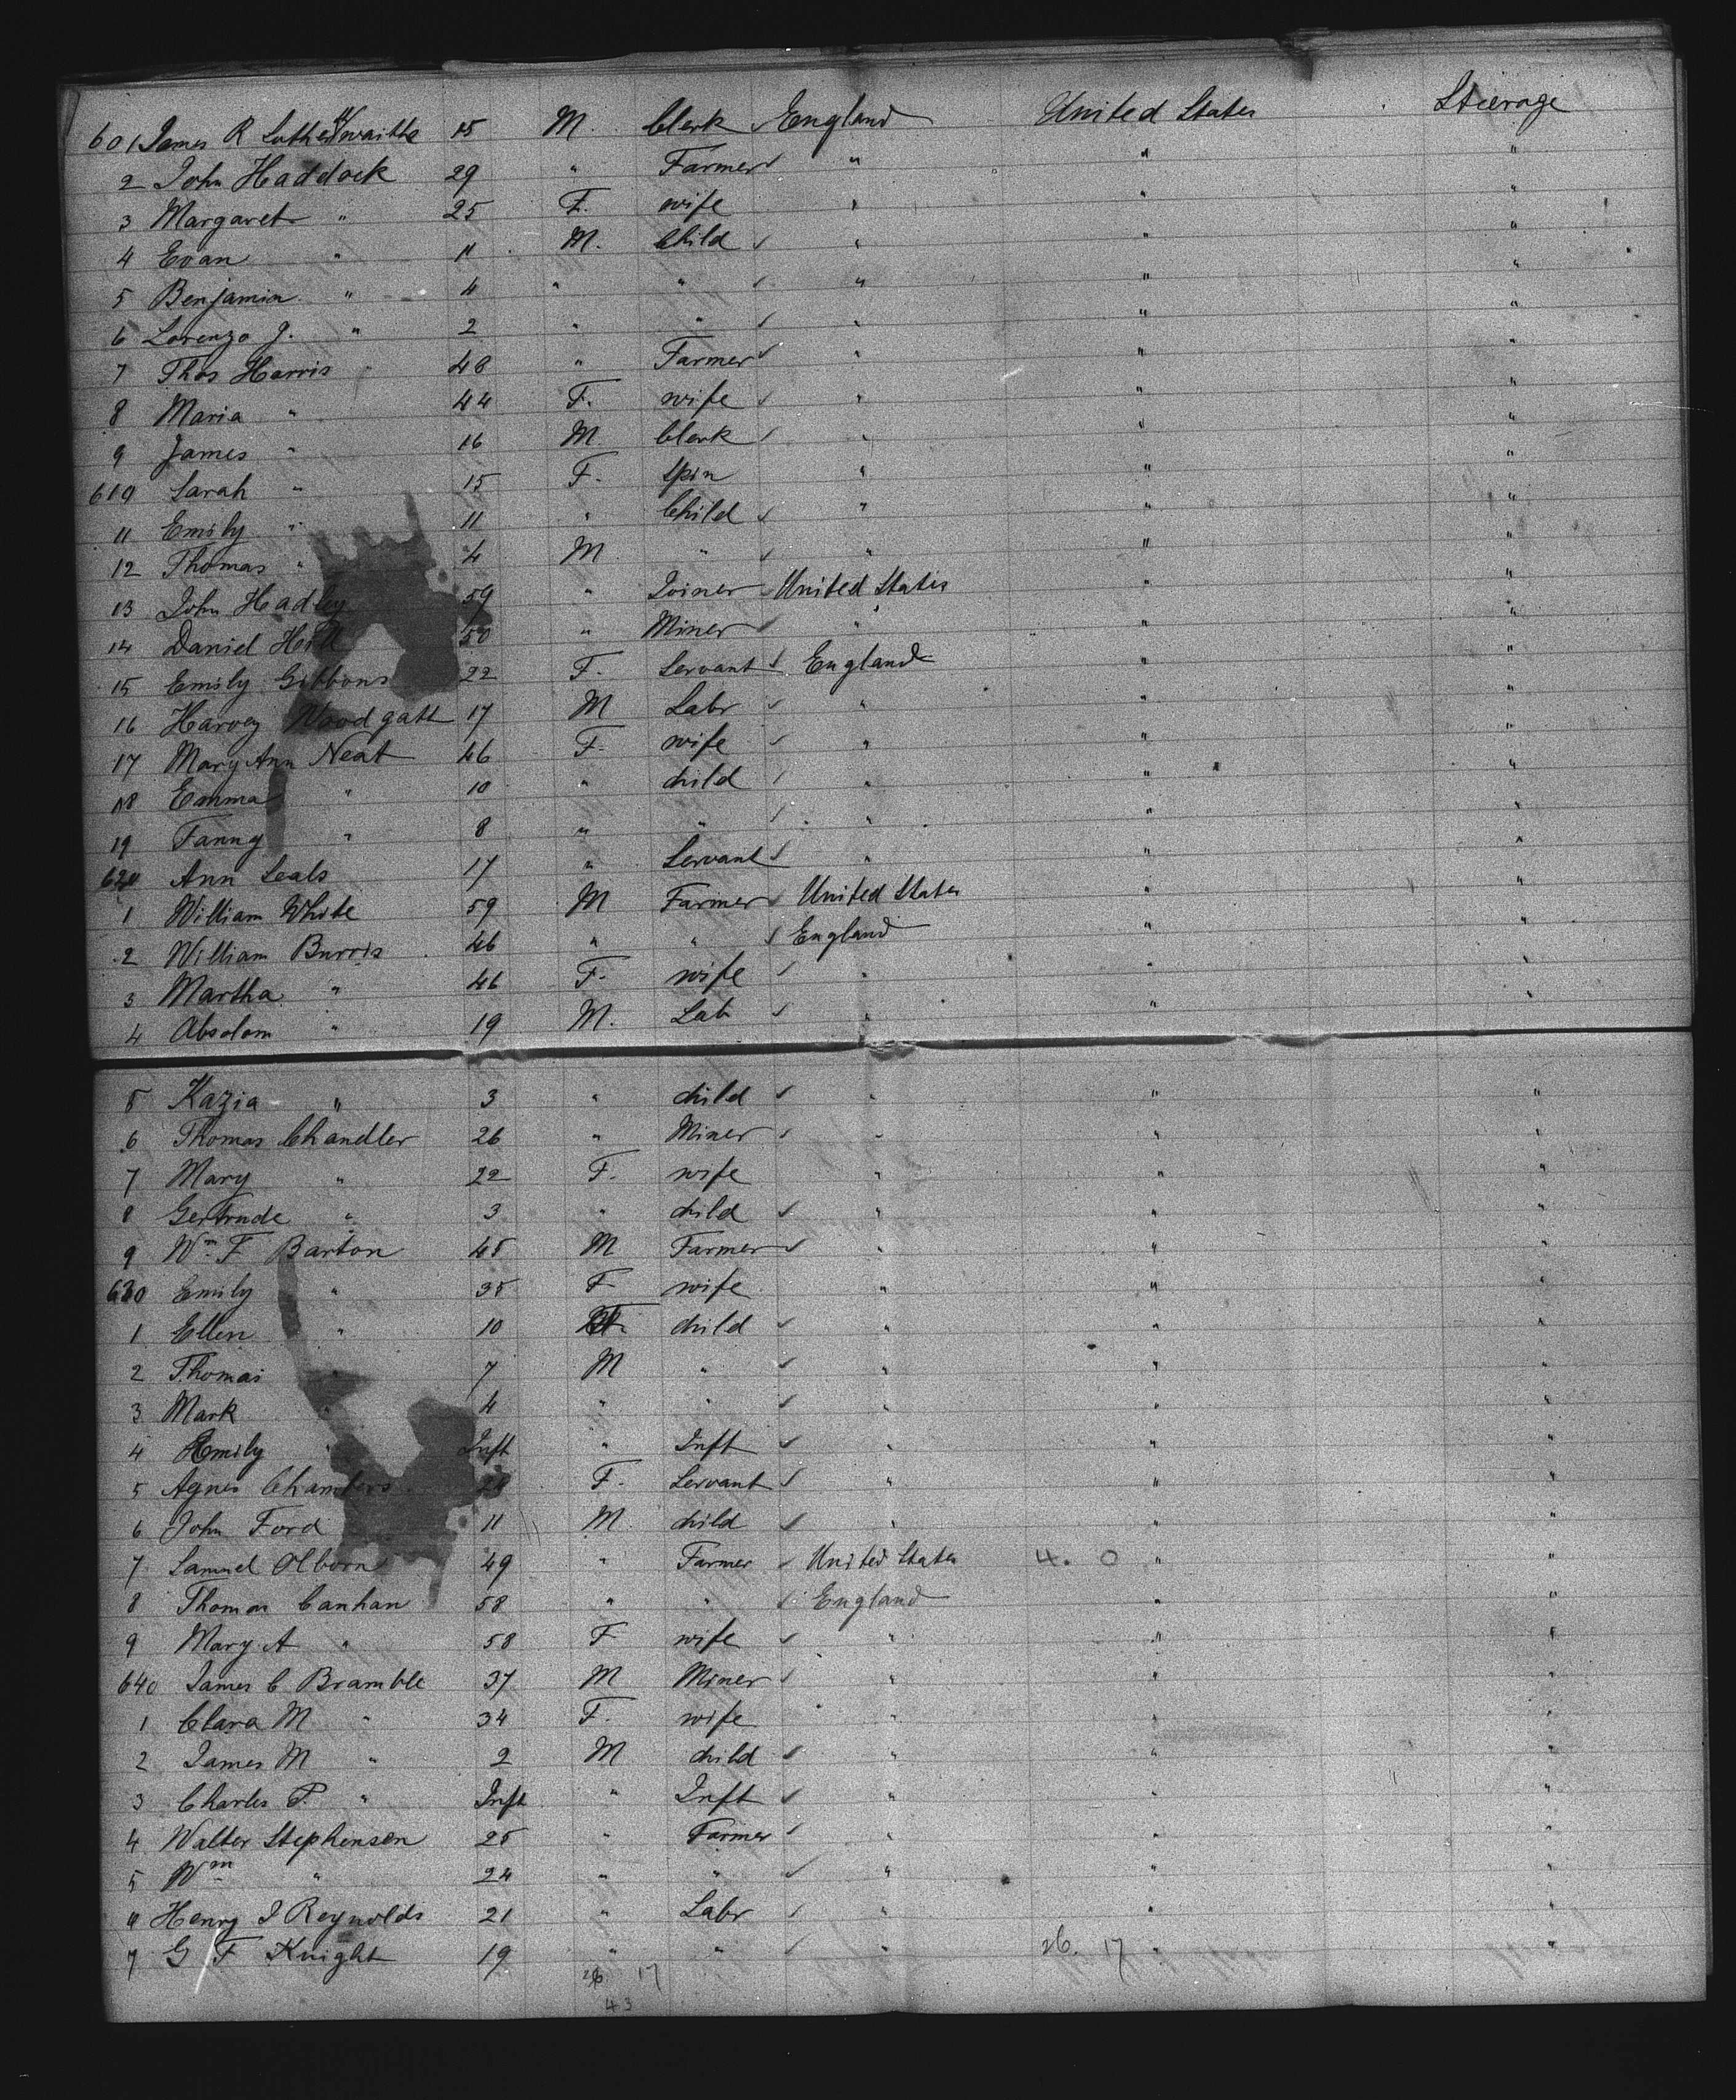 601 James R Lutherwaithe 15 M. Clerk England United States Steerage
2 John Haddock 29 " Farmer " " "
3 Margaret " 25 F. wife " " "
4 Evan " 11 M. Child " " "
5 Benjamin " 4 " " " " "
6 Lorenzo J. " 2 " " " " "
7 Thos Harris 48 " Farmer " " "
8 Maria " 44 F. wife " " "
9 James " 16 M. Clerk " " "
610 Sarah " 15 F. Spin " " "
11 Emily " 11 " Child " " "
12 Thomas " 4 M " " " "
13 John Hadley 59 " Joiner United States " "
14 Daniel Hill 50 " Miner " " "
15 Emily Gibbons 22 F. Servant England " "
16 Harvey Woodgatt 17 M Labr " " "
17 Mary Ann Neat 46 F. wife " " "
18 Emma " 10 " child " " "
19 Fanny " 8 " " " " "
620 Ann Seals 17 " Servant " " "
1 William White 59 M Farmer United States " "
2 William Burris 46 " " England " "
3 Martha " 46 F. wife " " "
4 Absolom " 19 M. Lab " " "
5 Kazia " 3 " child " " "
6 Thomas Chandler 26 " Miner " " "
7 Mary " 22 F. wife " " "
8 Gertrude " 3 " child " " "
9 Wm F Barton 45 M Farmer " " "
630 Emily " 35 F wife " " "
1 Ellen " 10 F. child " " "
2 Thomas " 7 M " " " "
3 Mark " 4 " " " " "
4 Emily " Inft " Inft " " "
5 Agnes Chambers F. Servant " " "
6 John Ford 11 M. child " " "
7 Samuel Olborn 49 " Farmer United States 4. 0 " "
8 Thomas Canhan 58 " " England " "
9 Mary A " 58 F wife " " "
640 James C Bramble 37 M Miner " " "
1 Clara M " 34 F. wife " " "
2 James M " 2 M child " " "
3 Charles P. " Inft " Inft " " "
4 Walter Stephenson 25 " Farmer " " "
5 Wm " 24 " " " " "
6 Henry I Reynolds 21 " Labr " " "
7 G F Knight 19 " " " 26. 17 " "
26 17
43